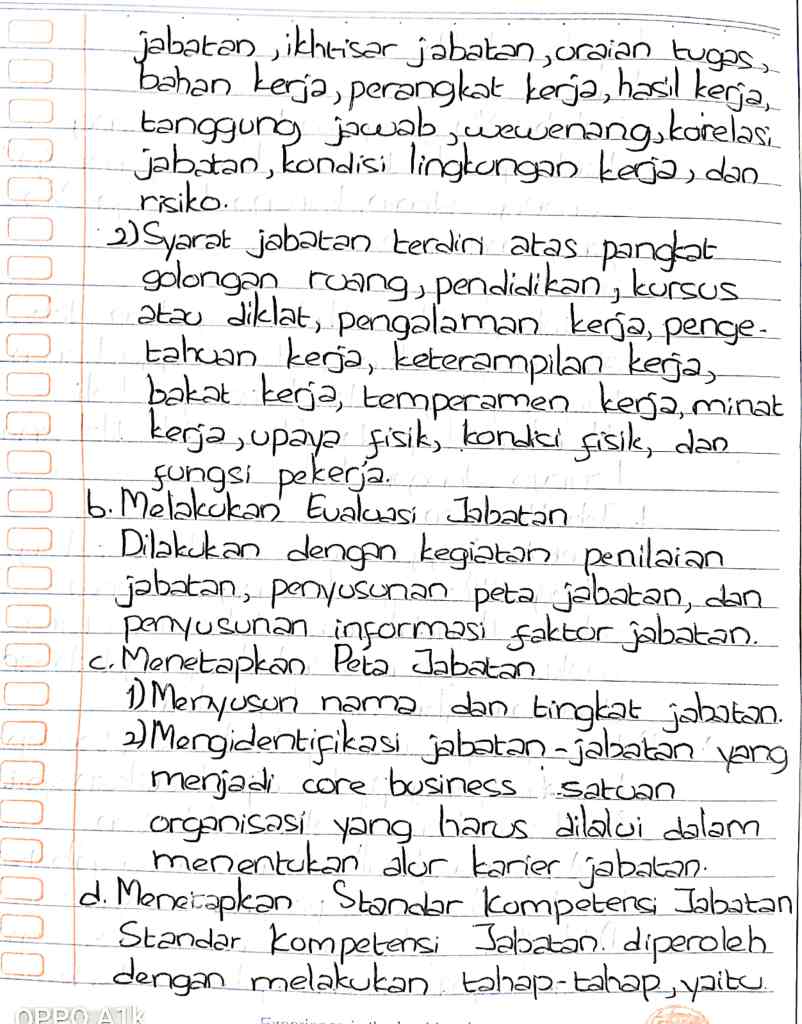 jabatan, ikhtisar jabatan, uraian tugas,
bahan kerja, perangkat kerja, hasil kerja,
tanggung jawab, wewenang, korelasi
jabatan, kondisi lingkungan kerja, dan
risiko.
2) Syarat jabatan terdiri atas pangkat
golongan ruang, pendidikan, kursus
atau diklat, pengalaman kerja, penge-
tahuan kerja, keterampilan kerja,
bakat kerja, temperamen kerja, minat
kerja, upaya fisik, kondisi fisik, dan
fungsi pekerja.
b. Melakukan Evaluasi Jabatan
Dilakukan dengan kegiatan penilaian
jabatan, penyusunan peta jabatan, dan
penyusunan informasi faktor jabatan.
c. Menetapkan Peta Jabatan
1) Menyusun nama dan tingkat jabatan.
2) Mengidentifikasi jabatan-jabatan yang
menjadi core business satuan
organisasi yang harus dilalui dalam
menentukan alur karier jabatan.
d. Menetapkan Standar Kompetensi Jabatan
Standar Kompetensi Jabatan diperoleh
dengan melakukan tahap-tahap, yaitu
OPPO A1k